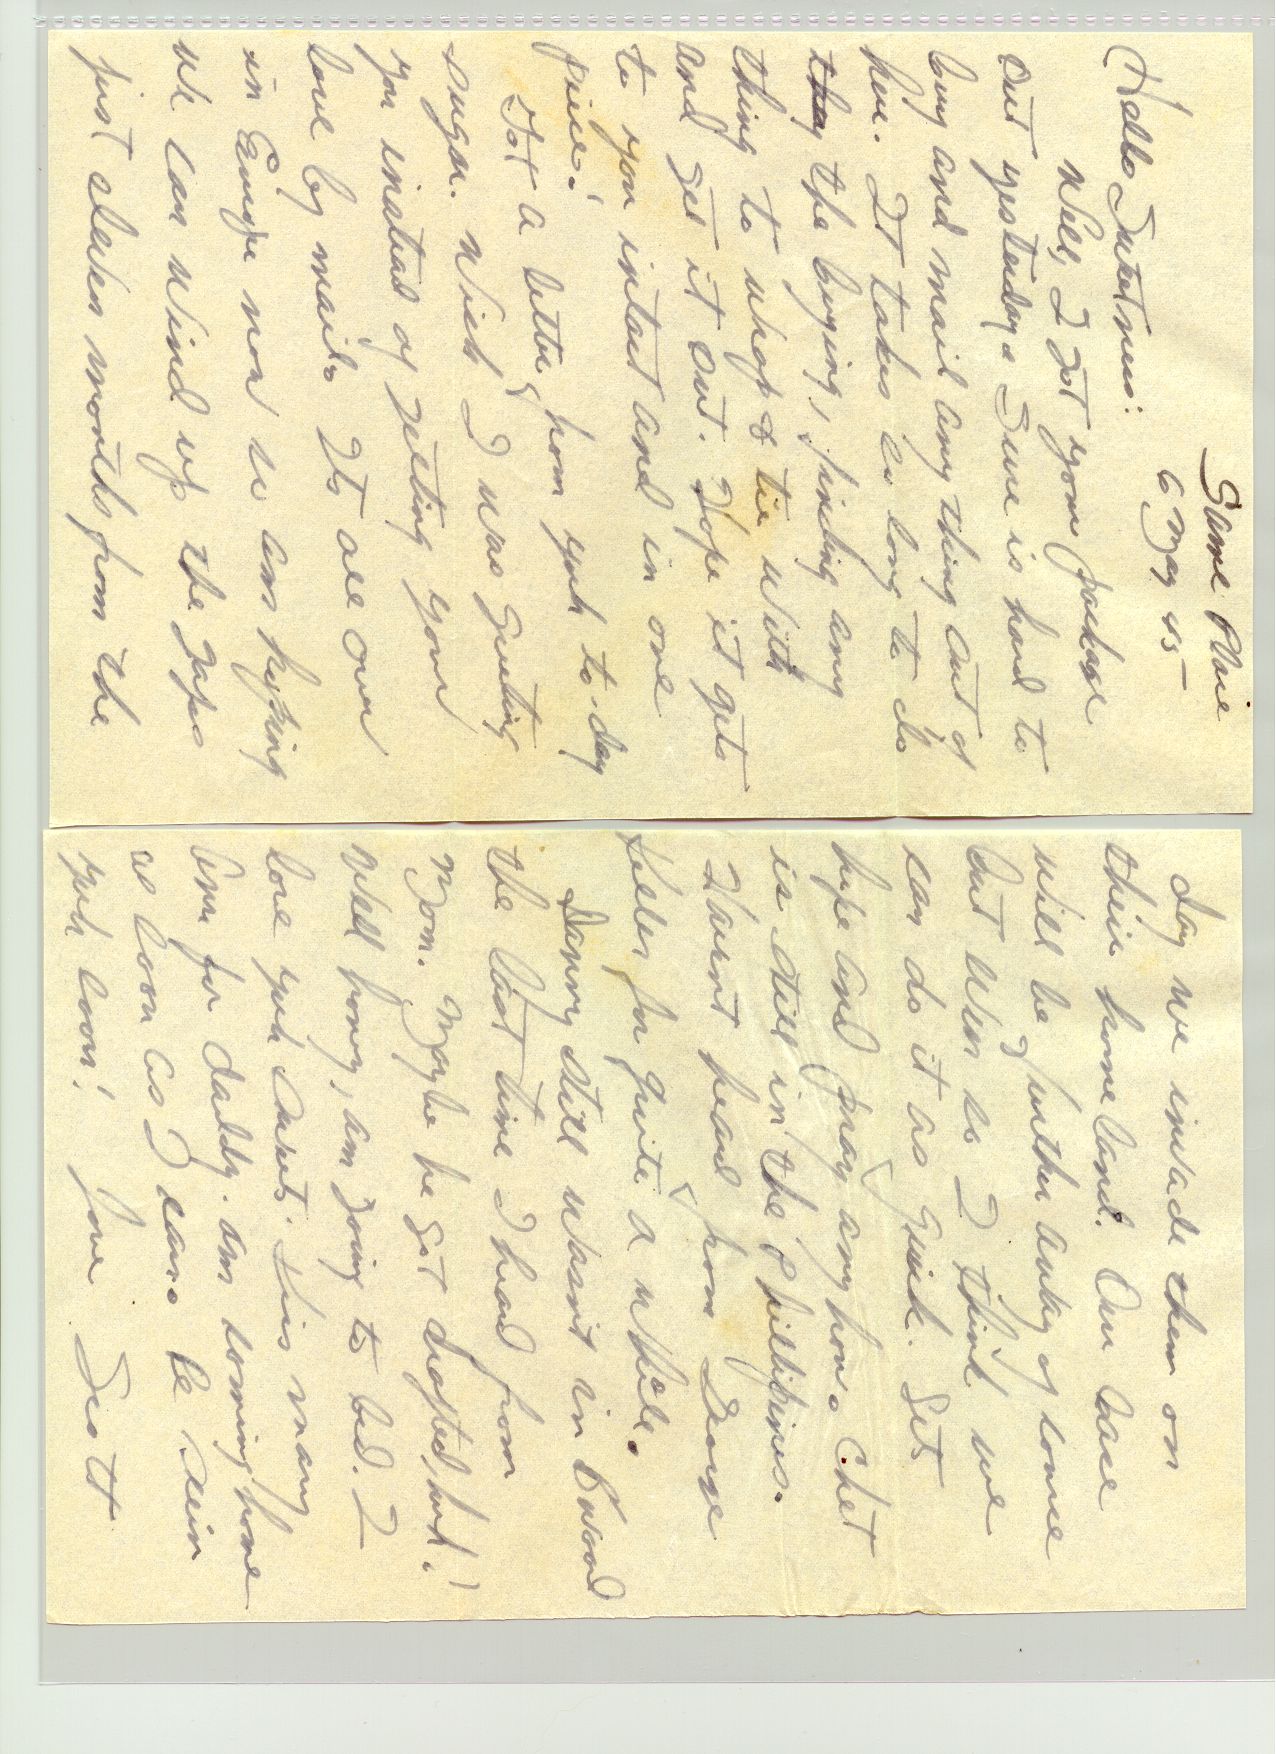 Same Place
6 May 45
Hello Sweetness:
Well, I got your package
out yesterday. Sure is hard to
buy and mail any thing out of
here. It takes so long to do
the buying, finding any
thing to wrap & tie with
and get it out. Hope it gets
to you intact and in one
piece!
Got a letter from yuh to-day
sugar. Wish I was getting
you instead of getting your
love by mail. It's all over
in Europe now so am hoping
we can wind up the Japs
just eleven months from the
day we invade them on
their home land. Our base
will be further away of course
but even so I think we
can do it as quick. Lets
hope and pray any how. Chet
is still in the Phillipines.
Havent heard from George
for quite a while.
Danny still wasn't in Bwood
the last time I heard from
Myon. Maybe he got drafted, huh!
Well honey, am going to bed. I
love yuh Carets. Kiss many
Ann for daddy. Am coming home
as soon as I can. Be seein
yuh soon! Love Scott